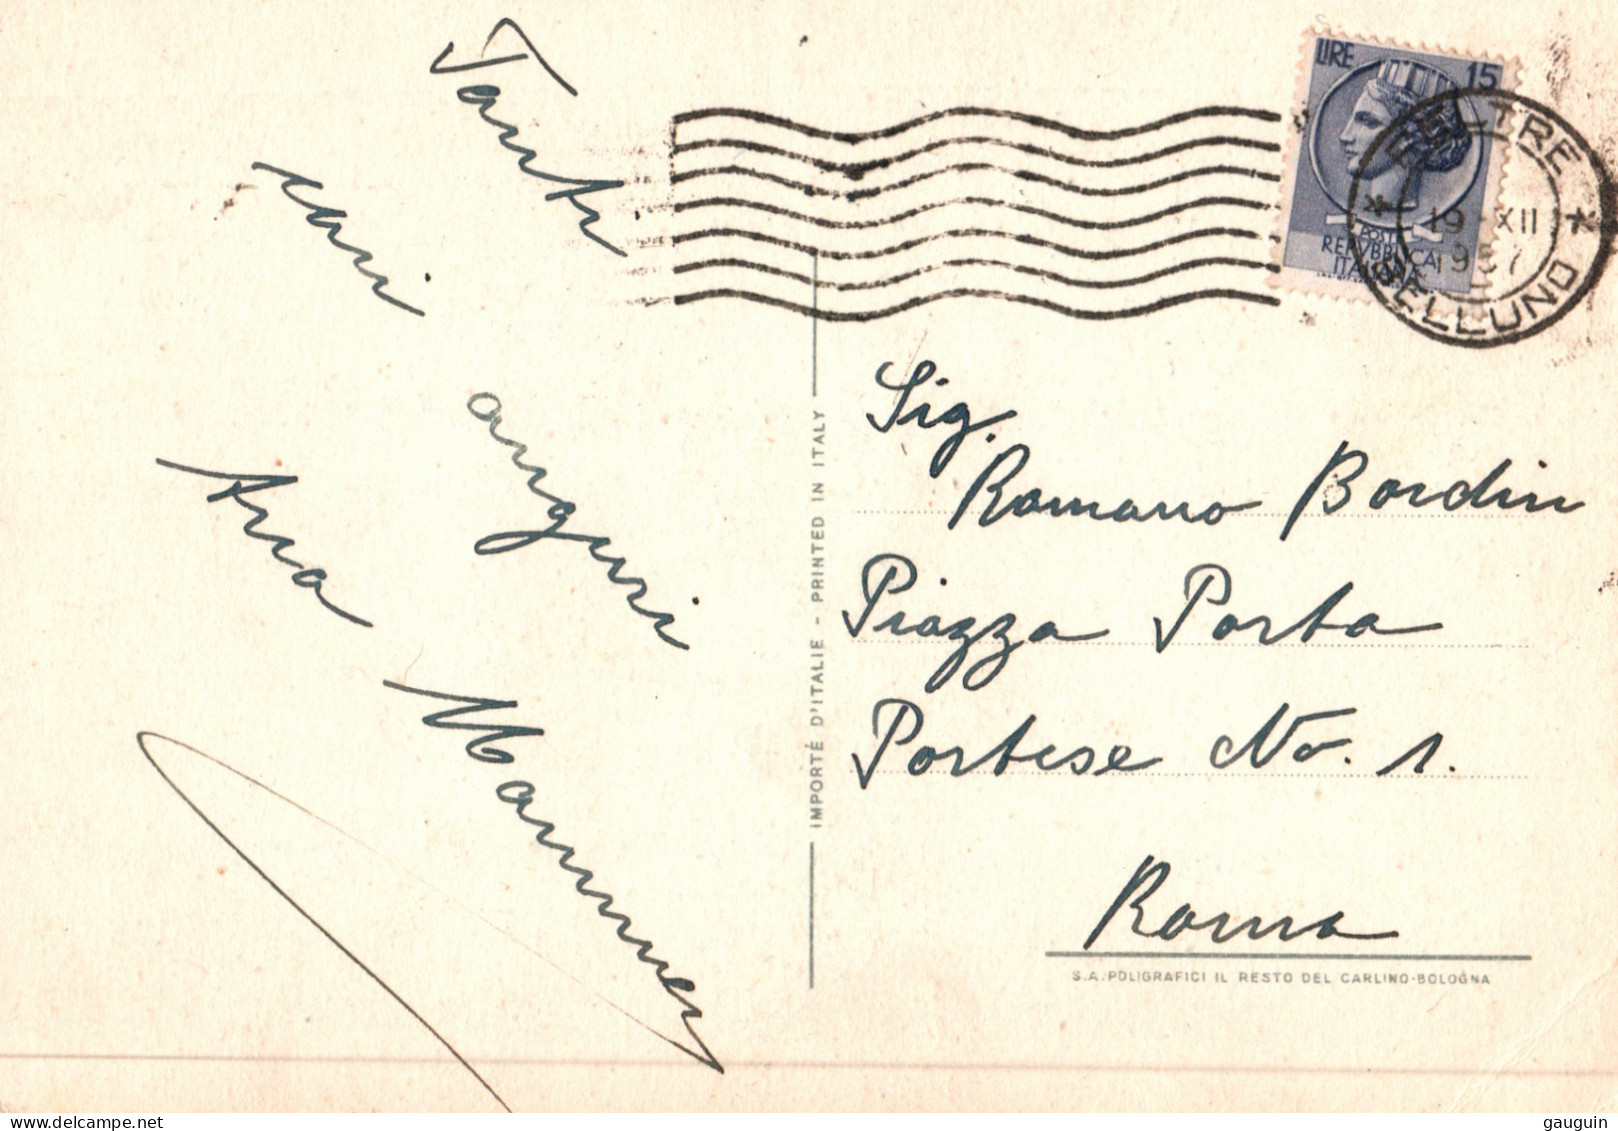 Tanti
cari
auguri
LIRE 15
POSTE
REPVBBLICA
ITALIANA
FELTRE
19 XII
1957
BELLUNO
Sig.
Romano Bordin
Piazza Porta
Portese No. 1.
Roma
IMPORTÉ D'ITALIE - PRINTED IN ITALY
S.A. POLIGRAFICI IL RESTO DEL CARLINO-BOLOGNA
gauguin © delcampe.net